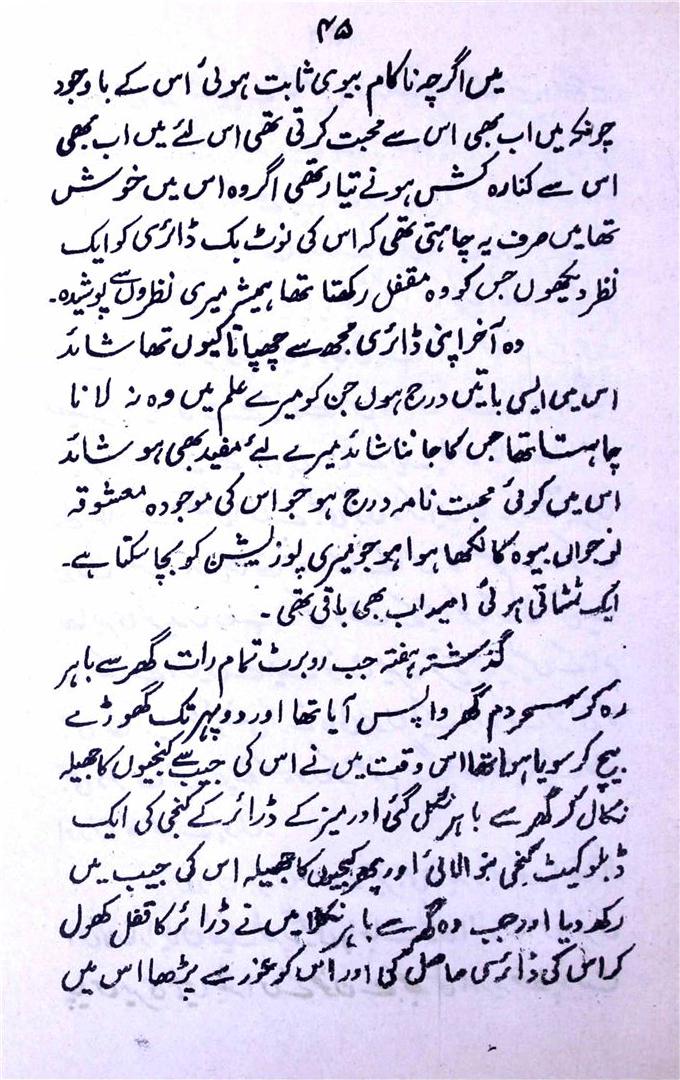 ۴۵
میں اگرچہ ناکام بیوی ثابت ہوئی اس کے باوجود
چونکہ میں اب بھی اس سے محبت کرتی تھی اس لئے میں اب بھی
اس سے کنارہ کش ہونے تیار تھی اگر وہ اس میں خوش
تھا میں صرف یہ چاہتی تھی کہ اس کی نوٹ بک ڈائری کو ایک
نظر دیکھوں جس کو وہ مقفل رکھتا تھا ہمیشہ میری نظروں سے پوشیدہ۔
وہ آخر اپنی ڈائری مجھ سے چھپاتا کیوں تھا شائد
اس میں ایسی باتیں درج ہوں جن کو میرے علم میں وہ نہ لانا
چاہتا تھا جس کا جاننا شائد میرے لئے مفید بھی ہو شائد
اس میں کوئی محبت نامہ درج ہو جو اس کی موجودہ معشوقہ
نوجواں بیوہ کا لکھا ہوا ہو جو میری پوزیشن کو بچا سکتا ہے۔
ایک ٹمٹاتی ہوئی امید اب بھی باقی تھی۔
گذشتہ ہفتہ جب روبرٹ تمام رات گھر سے باہر
رہ کر سحر دم گھر واپس آیا تھا اور دوپہر تک گھوڑے
بیچ کر سویا ہوا تھا اس وقت میں نے اس کی جیب سے کنجیوں کا جھیلہ
نکال کر گھر سے باہر نکل گئی اور میز کے ڈرائر کے کنجی کی ایک
ڈبلوکیٹ کنجی بنوالائی اور پھر کنجیوں کا جھیلہ اس کی جیب میں
رکھ دیا اور جب وہ گھر سے باہر نکلا میں نے ڈرائر کا قفل کھول
کر اس کی ڈائری حاصل کی اور اس کو غور سے پڑھا اس میں